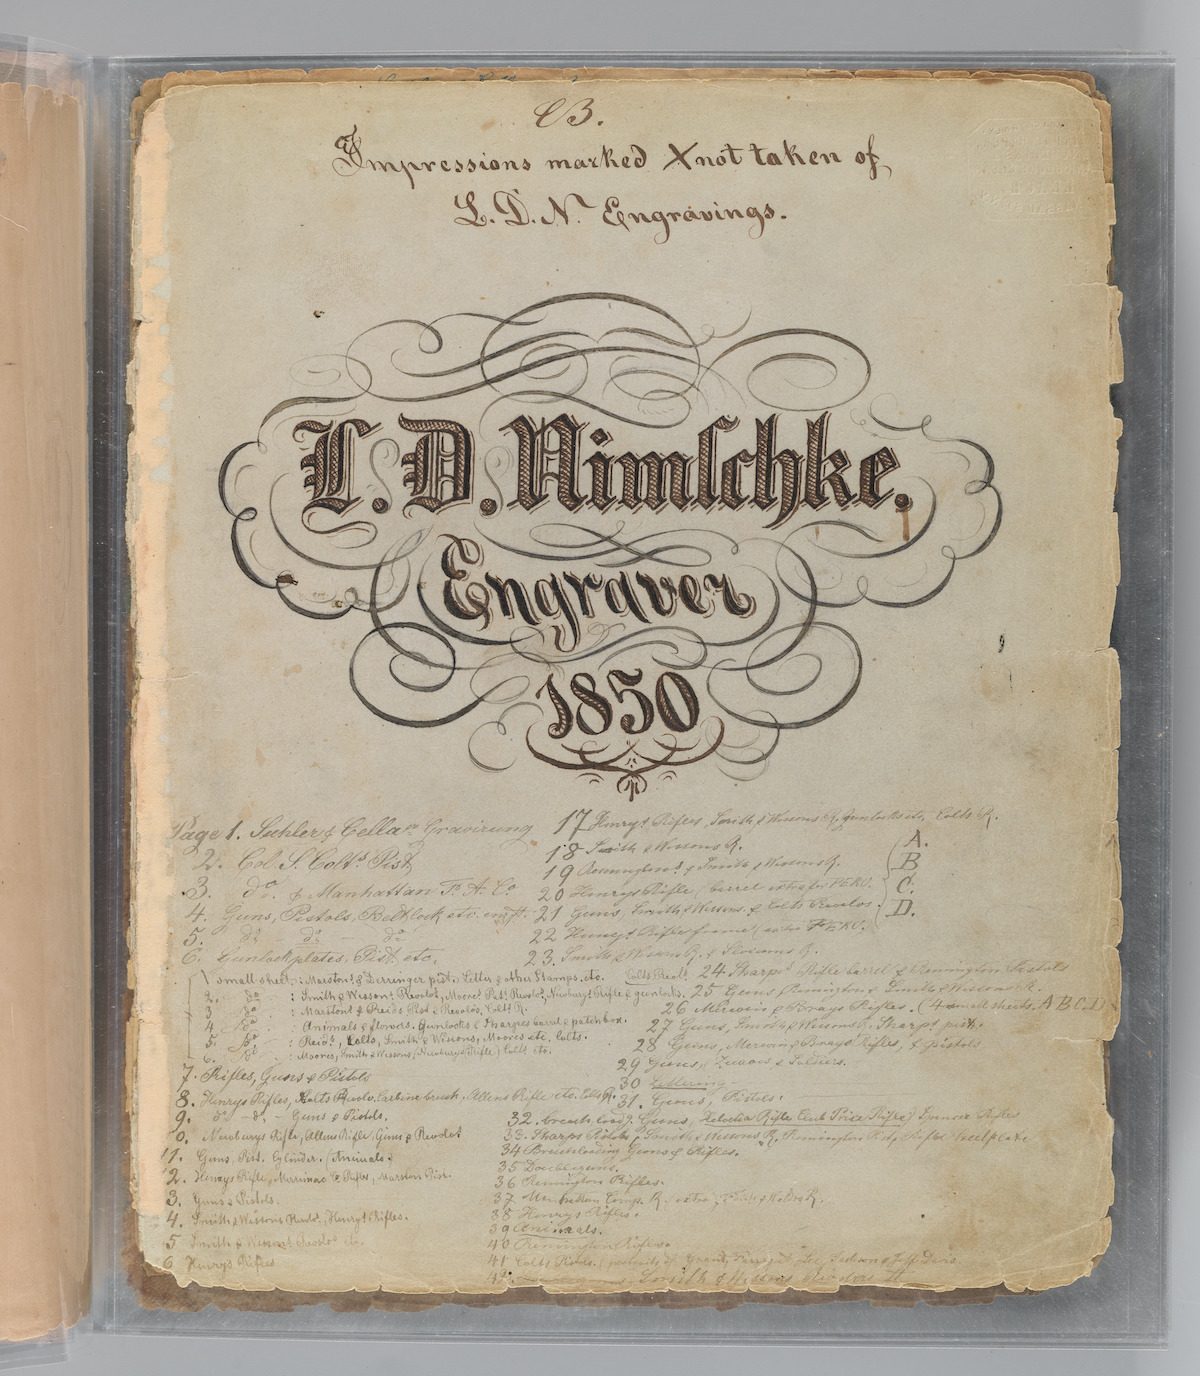 B.
Impressions marked X not taken of
L. D. N. Engravings.
L. D. Nimſchke.
Engraver
1850
Page 1. & Cellar Gravirung
2. Col. S. Colt's Pist.
3. do. & Manhattan F. A. Co
4. Guns, Pistols, Beltlock etc.
5. do do do
6. Gunlockplates, Pist. etc.
1 small sheet: Marston's & Derringer pist. & other Stamps. etc. Colts Revol.
2. do : Smith & Wesson's Revolvr, Moore's Pat. Revolr, Newbury Rifle & gunlocks.
3 do : Marston's & Reids Pist & Revolvs, Colt R.
4. do : Animals & flowers. Gunlocks & Sharpes barrel & patchbox.
5. do : Reid's, Colts, Smith & Wessons, Moores etc, Colts.
6. do : Moores, Smith & Wessons (Newburys Rifle) Colts etc.
7. Rifles, Guns & Pistols
8. Henrys Rifles, Colts Revolv. Carbine breach, Allens Rifle etc. Colts R.
9. do - do - Guns & Pistols.
0. Newburys Rifle, Allens Rifle, Guns & Revolvr
11. Guns, Pist. Cylinder. (Animals.)
2. Henrys Rifle, Merrimac & Rifles, Marston Pist.
3. Guns & Pistols.
4. Smith & Wessons Revolr, Henry's Rifles.
5 Smith & Wesson's Revolvr etc.
6 Henrys Rifles
17 Henrys Rifles, Smith & Wessons R, Gunlocks etc, Colts R.
18 Smith & Wessons R.
19 Remington's & Smith & Wessons R.
20 Henrys Rifle, barrel extra for PERU.
21 Guns, Smith & Wessons & Colts Revolvs.
22 Henry's Rifles frame, extra PERU.
A.
B
C.
D.
23. Smith & Wessons R. & R.
24 Sharps Rifle barrel & Remington Pistols
25 Guns, Remington & Smith & Wesson R.
26 Merwin & Brays Rifles. (4 small sheets, A B C D
27 Guns, Smith & Wessons R. Sharp's pist.
28 Guns, Merwin & Brays Rifles, & pistols
29 Guns, Zuaves & Soldiers.
30 Lettering.
31. Guns, Pistols.
32. breach load'g Guns, Rifle Club Prize Rifle) Rifles
33. Sharps Pistols, Smith & Wessons R, Remington Rifle heelplate
34 Breachloading Guns & Rifles.
35 Doubleguns.
36 Remington Rifles.
37 Manhattan Comp. R. extra,
38 Henrys Rifles.
39 Animals.
40 Remington Rifles.
41 Colts Pistols. (portraits of Grant, Lee, Jackson & Jeff Davis
42 Smith & Wessons